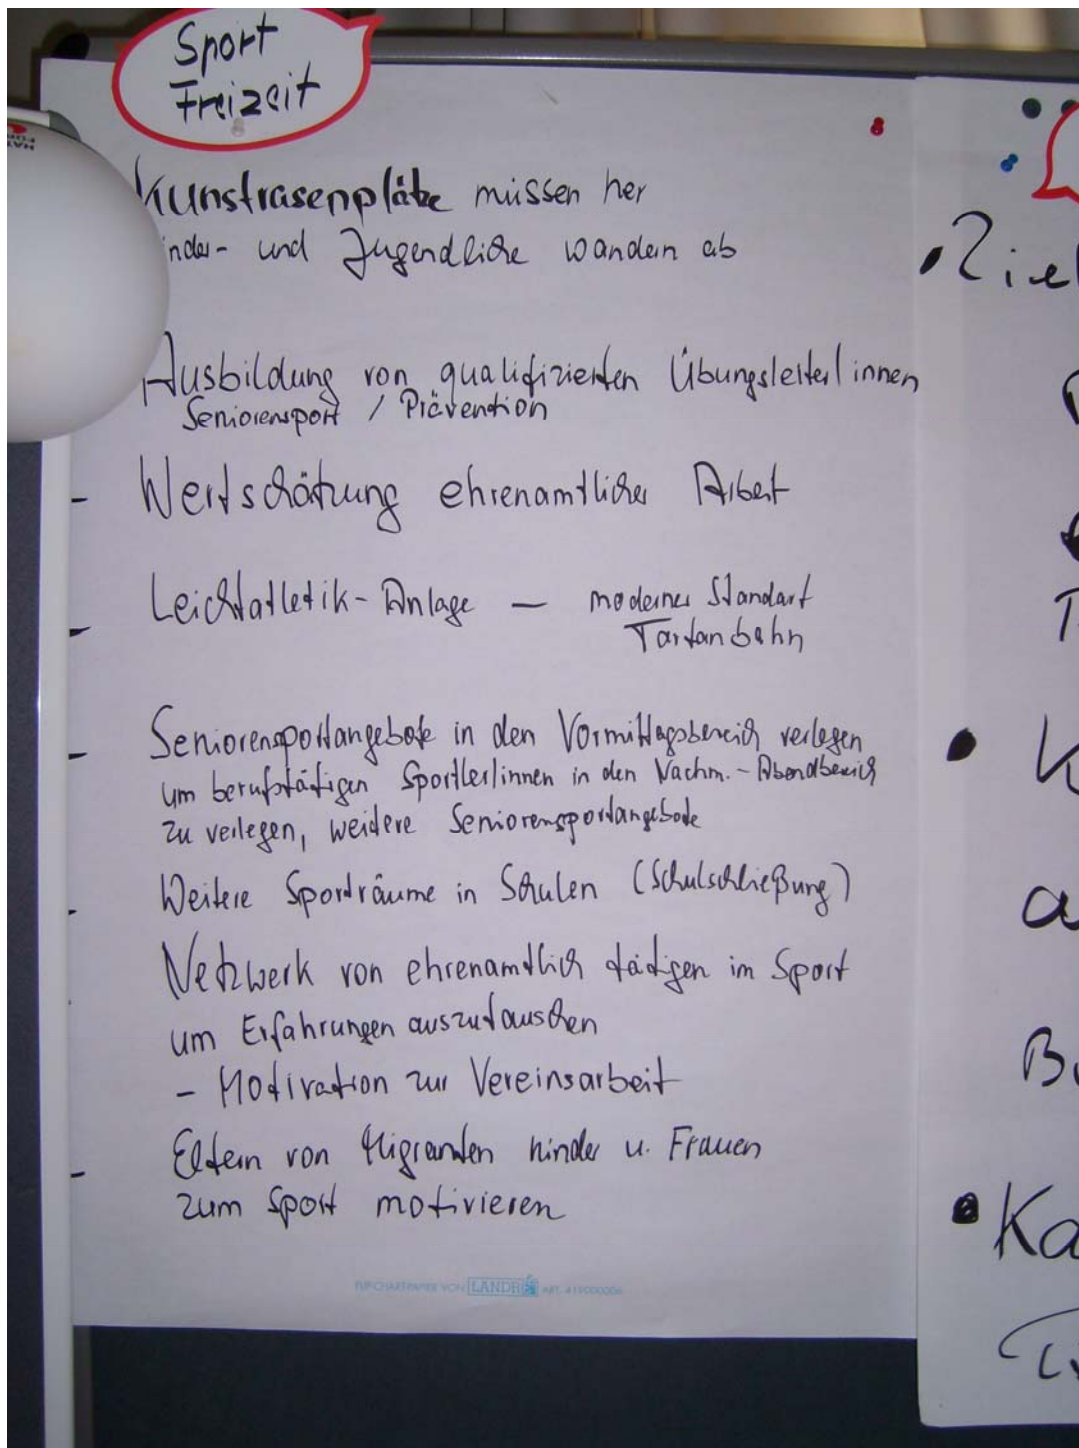 Sport
Freizeit
Kunstrasenplätze müssen her
inder- und Jugendliche wandern ab
Ausbildung von qualifizierten Übungsleiter/innen
Seniorensport / Prävention
- Wertschätzung ehrenamtlicher Arbeit
- Leichtatletik-Anlage — moderner Standart
Tartanbahn
- Seniorensportangebote in den Vormittagsbereich verlegen
um berufstätigen Sportler/innen in den Nachm.-Abendbereich
zu verlegen, weitere Seniorensportangebote
- Weitere Sporträume in Schulen (Schulschließung)
- Netzwerk von ehrenamtlich tätigen im Sport
um Erfahrungen auszutauschen
- Motivation zur Vereinsarbeit
- Eltern von Migranten kinder u. Frauen
zum Sport motivieren
FLIPCHARTPAPIER VON LANDRÉ ART.
• Ziel
• K
a
B
• Ka